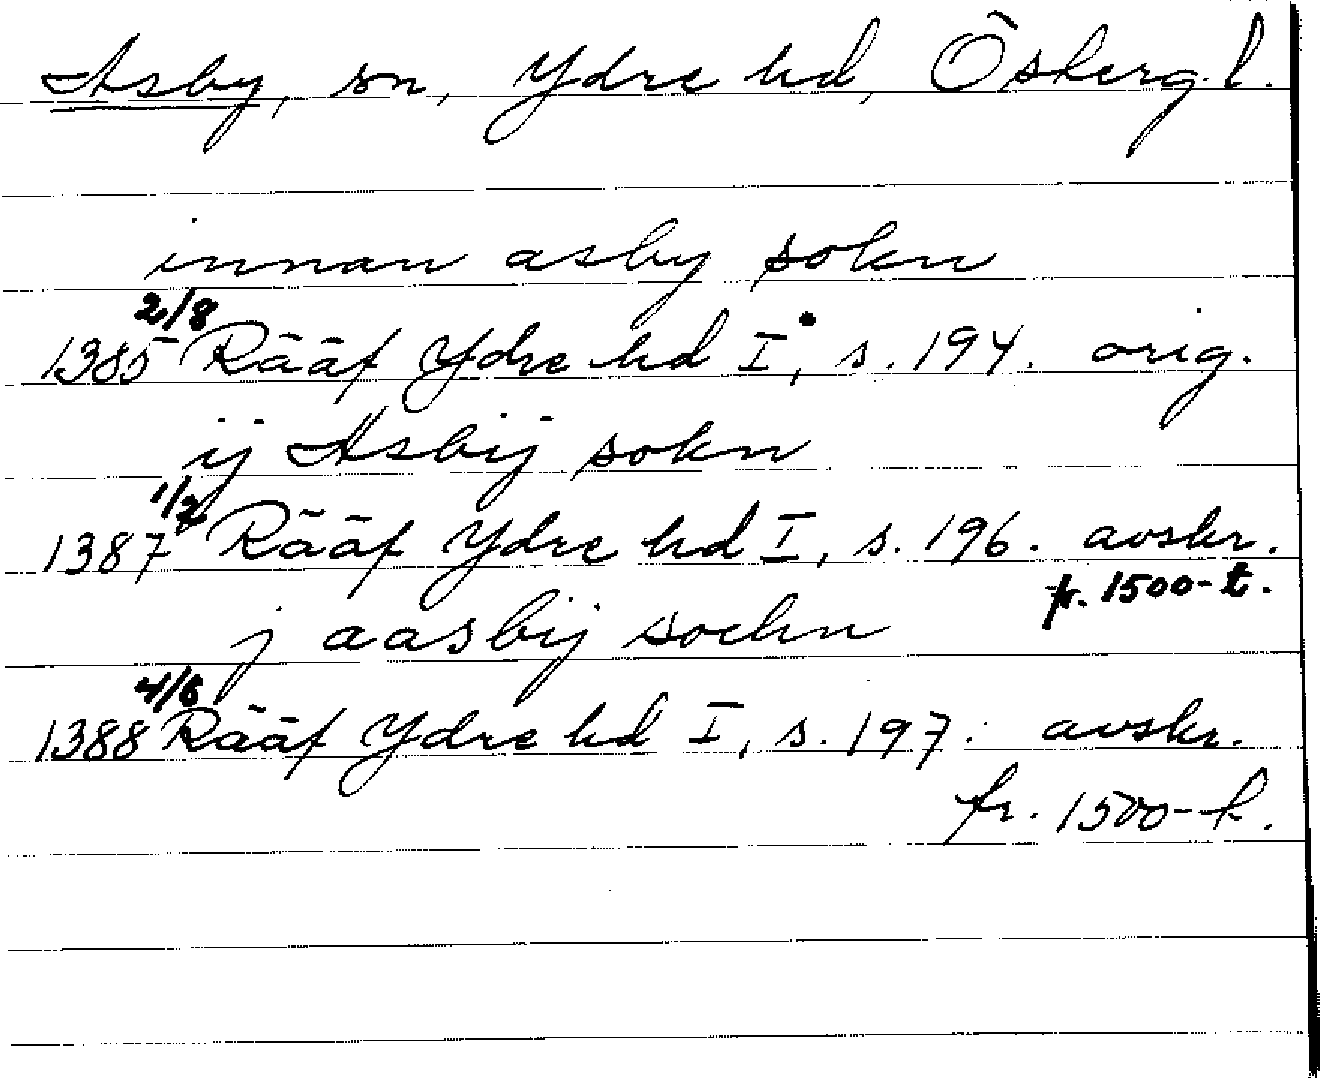 Asby, sn, Ydre hd, Österg. l.
innan asby sokn
1385 2/8 Rääf Ydre hd I, s. 194. orig.
ij Asbij sokn
1387 1/2 Rääf Ydre hd I, s. 196. avskr.
fr. 1500-t.
j aasbij sochn
1388 4/6 Rääf Ydre hd I, s. 197. avskr.
fr. 1500-t.